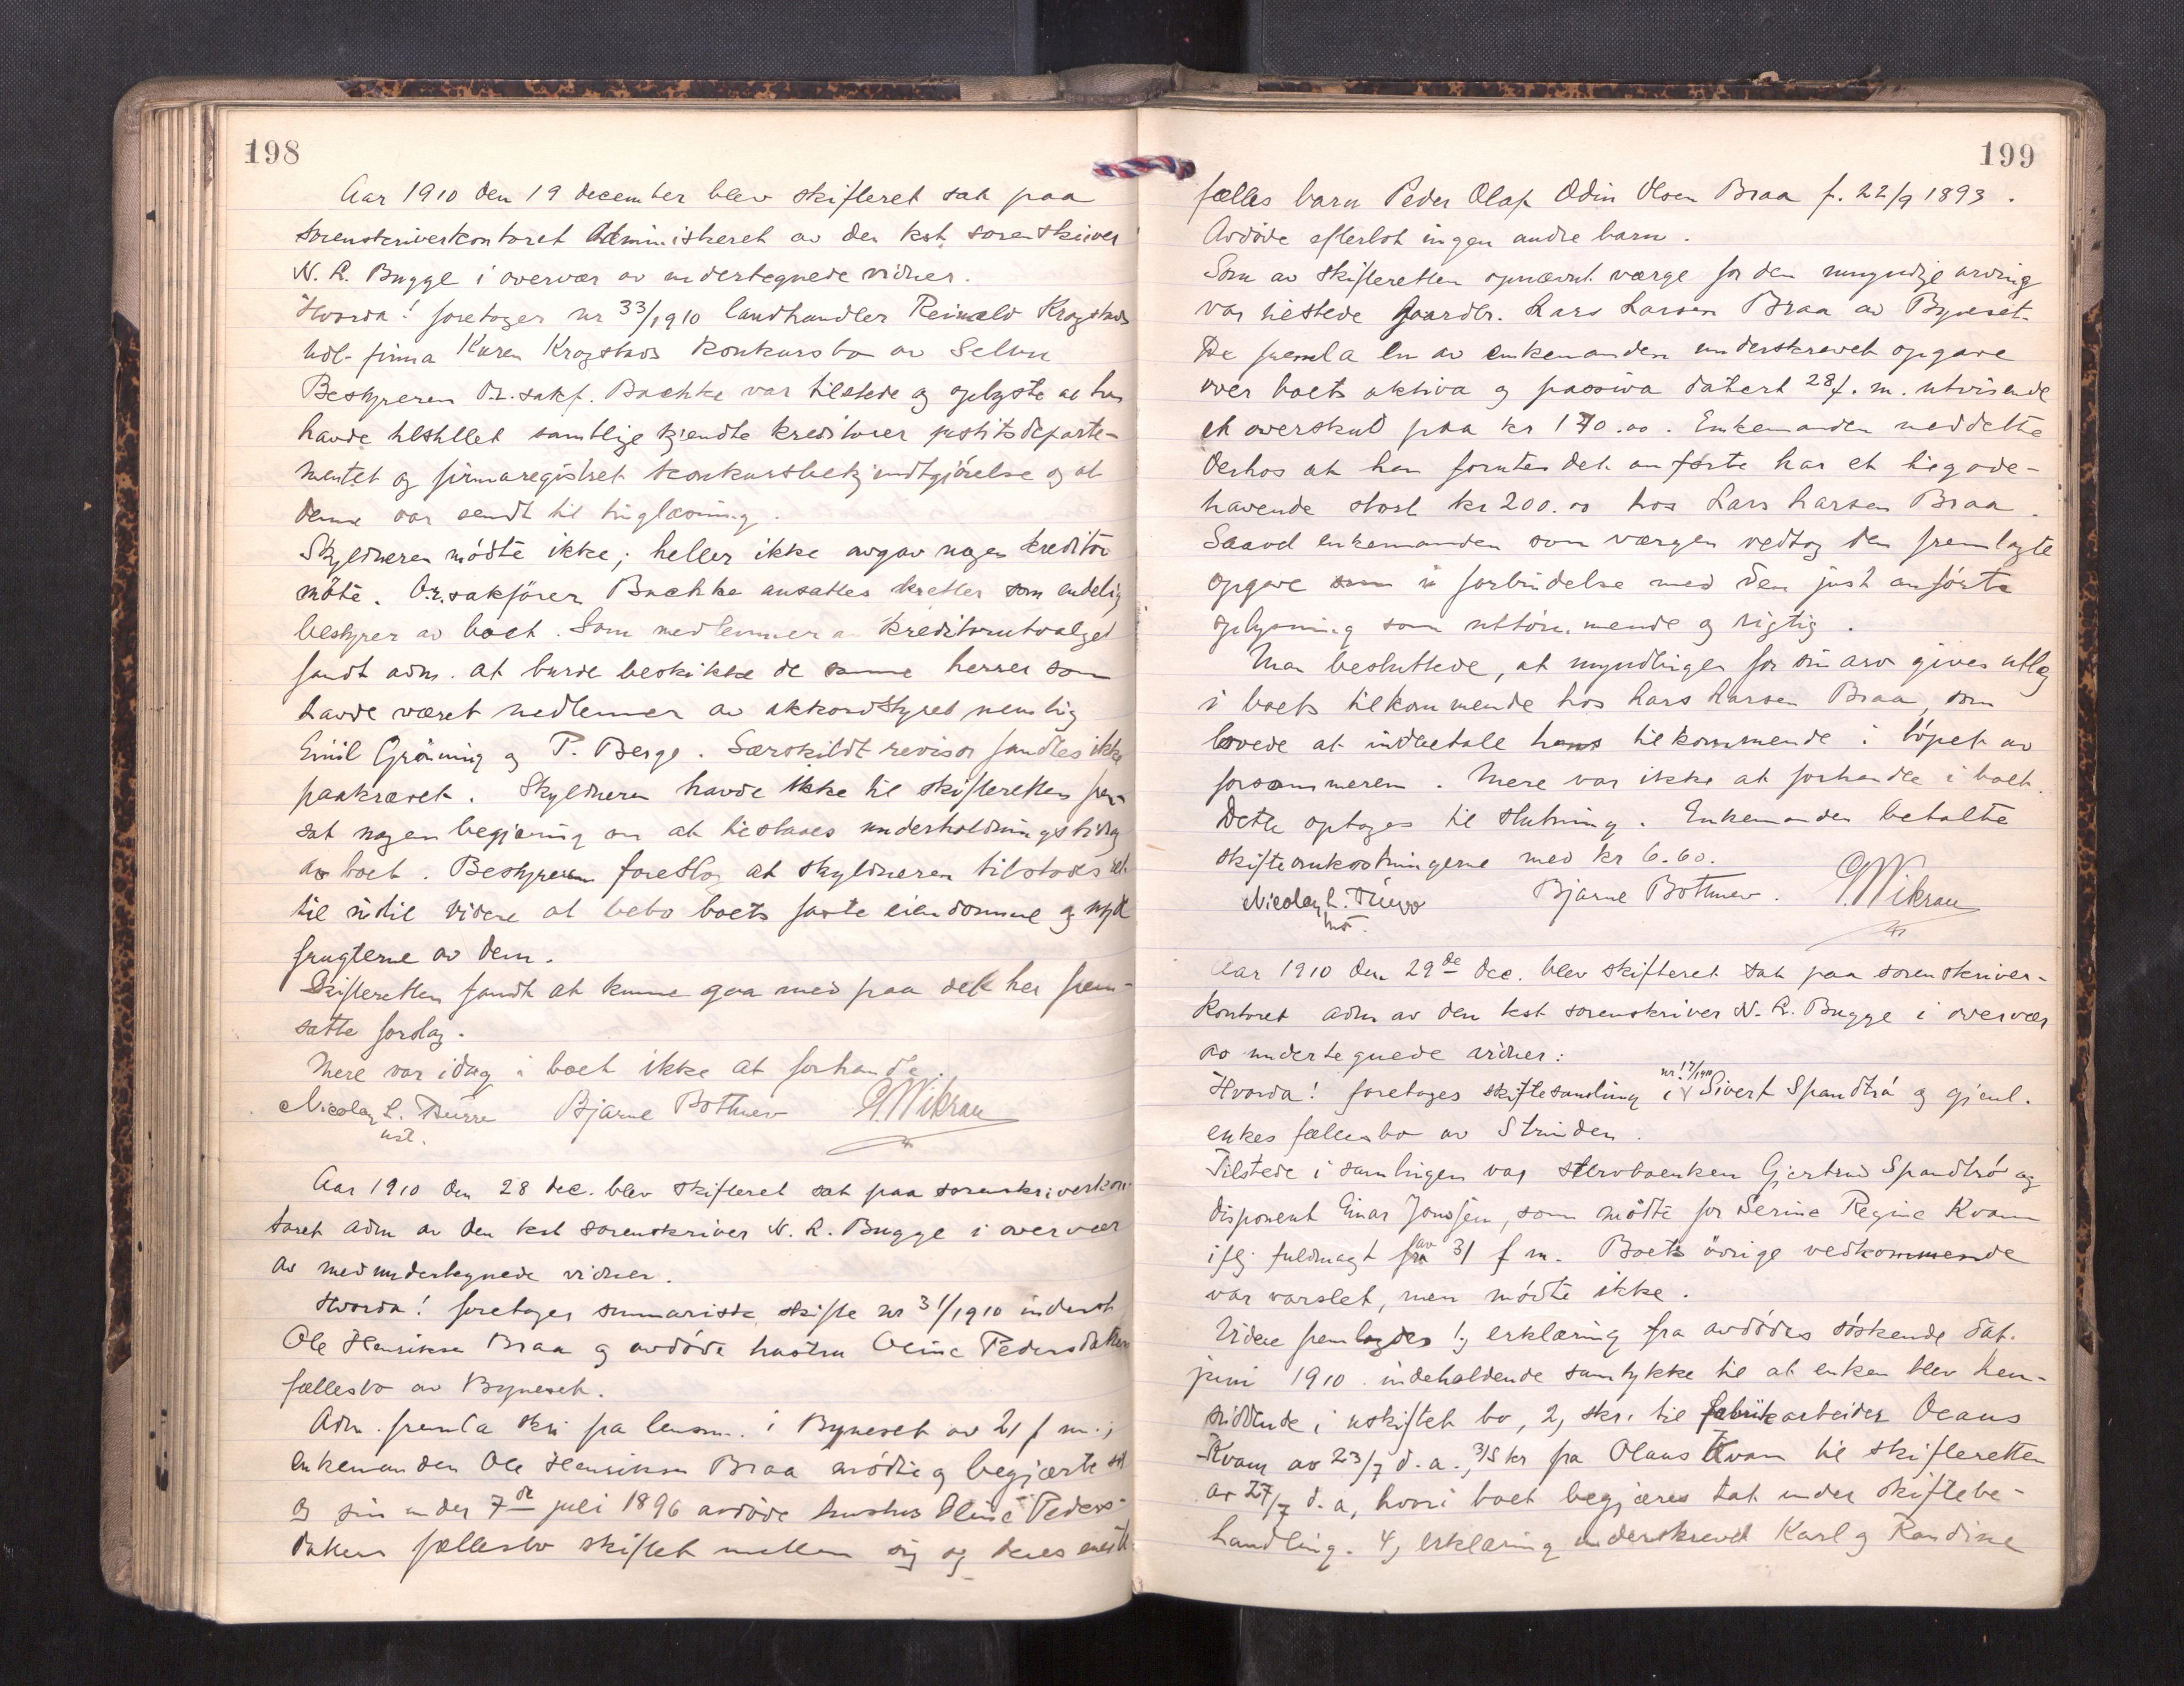 198
Aar 1910 den 19 december blev skifteret sat paa
sorenskriverkontoret administreret av den kst. sorenskriver
N. R. Bugge i overvær av undertegnede vidner.
Hvorda! foretoges nr 33/1910 landhandler Reinald Krogstads
hdl. firma Karen Krogstads konkursbo av Selbu
Bestyreren O.r.sakf. Bachke var tilstede og oplyste at han
havde tilstillet samtlige kjendte kreditorer justitsdeparte-
mentet og firmaregistret konkursbekjendtgjörelse og at
denne var sendt til tinglæsning.
Skyldneren mödte ikke; heller ikke avgav nogen kreditor
möte. O.r.sakförer Bachke ansattes derefter som endelig
bestyrer av boet. Som medlemmer a kreditorutvalget
fandt adm. at burde beskikke de samme herrer som
havde været medlemmer av akkordstyret nemlig
Emil Gröning og P. Berge. Særskildt revisor fandtes ikke
paakrævet. Skyldneren havde ikke til skifteretten frem-
sat nogen begjæring om at tilstaaes underholdningsbidrag
av boet. Bestyreren foreslog at skyldneren tilstodes ret
til indtil videre at bebo boets faste eiendomme og nyde
frugterne av dem.
Skifteretten fandt at kunne gaa med paa det her frem-
satte forslag.
Mere var idag i boet ikke at forhandle.
Nicolay L. Dürre Bjarne Bothner G. Wikran
Aar 1910 den 28 dec. blev skifteret sat paa sorenskriverkon-
toret adm av den kst sorenskriver N. R. Bugge i overvær
av medundertegnede vidner.
Hvorda! foretoges summarisk skifte nr 31/1910 inderst
Ole Henriksen Braa og avdöde hustru Oline Pedersdatters
fællesbo av Bynesset.
Adm. fremla skr. fra lensm. i Bynesset av 21 f m.;
Enkemanden Ole Henriksen Braa mödte og begjærte sit
og sin under 7de juli 1896 avdöde hustru Oline Peders-
datters fællesbo skiftet mellem sig og deres eneste
199
fælles barn Peder Olaf Odin Olsen Braa f. 22/9 1893.
Avdöde efterlot ingen andre barn.
Som av skifteretten opnævnt værge for den umyndige arving
var tilstede gaardbr. Lars Larsen Braa av Bynesset.
De fremla en av enkemanden underskrevet opgave
over boets aktiva og passiva datert 28 f. m. utvisende
et overskud paa kr 170.00. Enkemanden meddelte
derhos at han foruten det anförte har et tilgode-
havende stort kr 200.00 hos Lars Larsen Braa.
Saavel enkemanden som værgen vedtog den fremlagte
opgave som i forbindelse med den just anförte
oplysning som uttömmende og rigtig.
Man besluttede, at myndlingen for sin arv gives utlæg
i boets tilkommende hos Lars Larsen Braa, som
lovede at indbetale hans tilkommende i löpet av
forsommeren. Mere var ikke at forhandle i boet.
Dette optoges til slutning. Enkemanden betalte
skifteomkostningerne med kr 6.60.
Nicolay L. Dürre Bjarne Bothner. G. Wikran
Aar 1910 den 29de dec. blev skifteret sat paa sorenskriver-
kontoret adm av den kst sorenskriver N. R. Bugge i overvær
av undertegnede vidner:
Hvorda! foretoges skiftesamling i nr. 17/1910 Sivert Spandtrö og gjenl.
enkes fællesbo av Strinden.
Tilstede i samlingen var stervboenken Gjertrud Spandtrö og
disponent Einar Jonssen, som mötte for Serine Regine Kvam
iflg. fuldmagt av 31 f m. Boets övrige vedkommende
var varslet, men mödte ikke.
Videre fremlagdes 1, erklæring fra avdödes söskende dat.
juni 1910 indeholdende samtykke til at enken blev hen-
siddende i uskiftet bo, 2, skr. til fabrikarbeider Olaus
Kvam av 23/7 d. a., 3, skr fra Olaus Kvam til skifteretten
av 27/7 d. a, hvori boet begjæres tat under skiftebe-
handling. 4, erklæring underskrevet Karl og Randine